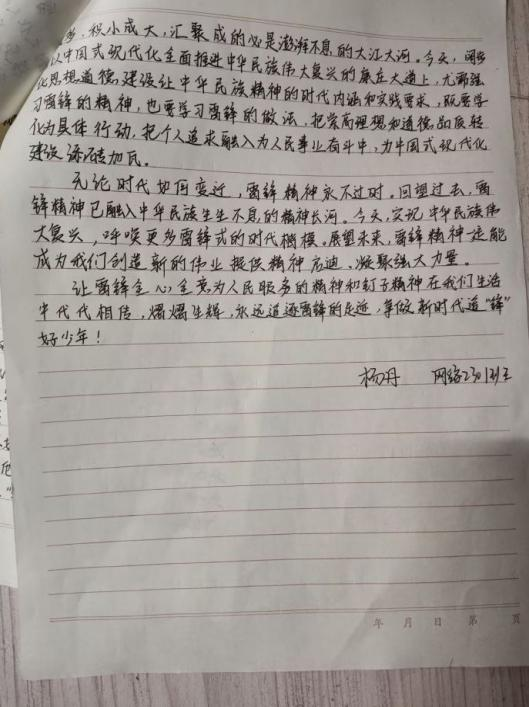 多,积小成大,汇聚成的必是澎湃不息的大江大河。今天,阔步
以中国式现代化全面推进中华民族伟大复兴的康庄大道上,尤需强
化思想道德建设让中华民族精神的时代内涵和实践要求,既要学
习雷锋的精神,也要学习雷锋的做法,把崇高理想和道德品质转
化为具体行动,把个人追求融入为人民事业奋斗中,为中国式现代化
建设添砖加瓦。
无论时代如何变迁,雷锋精神永不过时。回望过去,雷
锋精神已融入中华民族生生不息的精神长河。今天,实现中华民族伟
大复兴,呼唤更多雷锋式的时代楷模。展望未来,雷锋精神一定能
成为我们创造新的伟业提供精神启迪、凝聚强大力量。
让雷锋全心全意为人民服务的精神和钉子精神在我们生活
中代代相传,熠熠生辉,永远追逐雷锋的足迹,争做新时代追“锋”
好少年!
杨丹 网络2301班
年 月 日 第 页